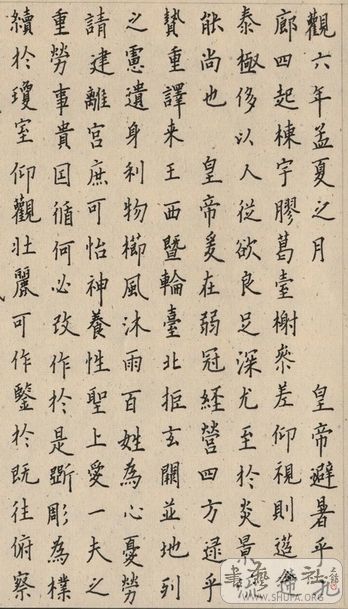 觀六年孟夏之月　皇帝避暑乎九
廊四起棟宇膠葛臺榭參差仰視則迢
泰極侈以人從欲良足深尤至於炎景
能尚也　皇帝爰在弱冠經營四方逮乎
贄重譯来王西暨輪臺北拒玄闕並地列
之憲遺身利物櫛風沐雨百姓為心憂勞
請建離宮庶可怡神養性聖上愛一夫之
重勞事貴因循何必改作於是斲彫為樸
續於瓊室仰觀壯麗可作鑒於既往俯察
WWW.SHUFA.ORG